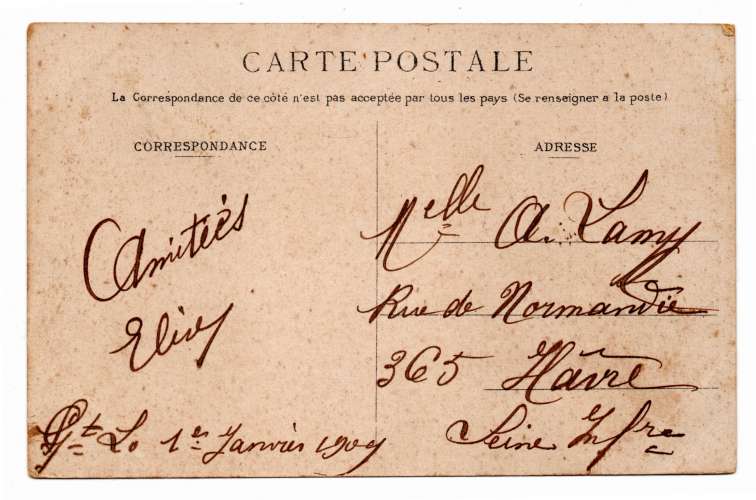 CARTE POSTALE
La Correspondance de ce côté n'est pas acceptée par tous les pays (Se renseigner a la poste)
CORRESPONDANCE
Amitiés
St Lo 1er Janvier 1909
ADRESSE
Melle A. Lamy
Rue de Normandie
365 Hâvre
Seine Infre